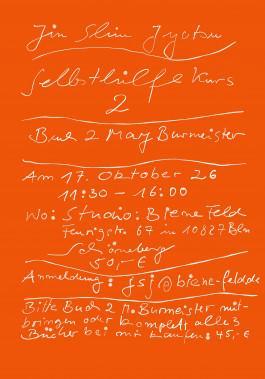 Jin Shin Jyutsu
Selbsthilfe Kurs
2
Buch 2 Mary Burmeister
Am 17. Oktober 26
11:30 – 16:00
Wo: Studio: Biene Feld
Feurigstr 67 in 10827 Bln
Schöneberg
50,-€
Anmeldung: jsj@biene-feld.de
Bitte Buch 2 M. Burmeister mit-
bringen oder komplett alle 3
Bücher bei mir kaufen: 45,-€